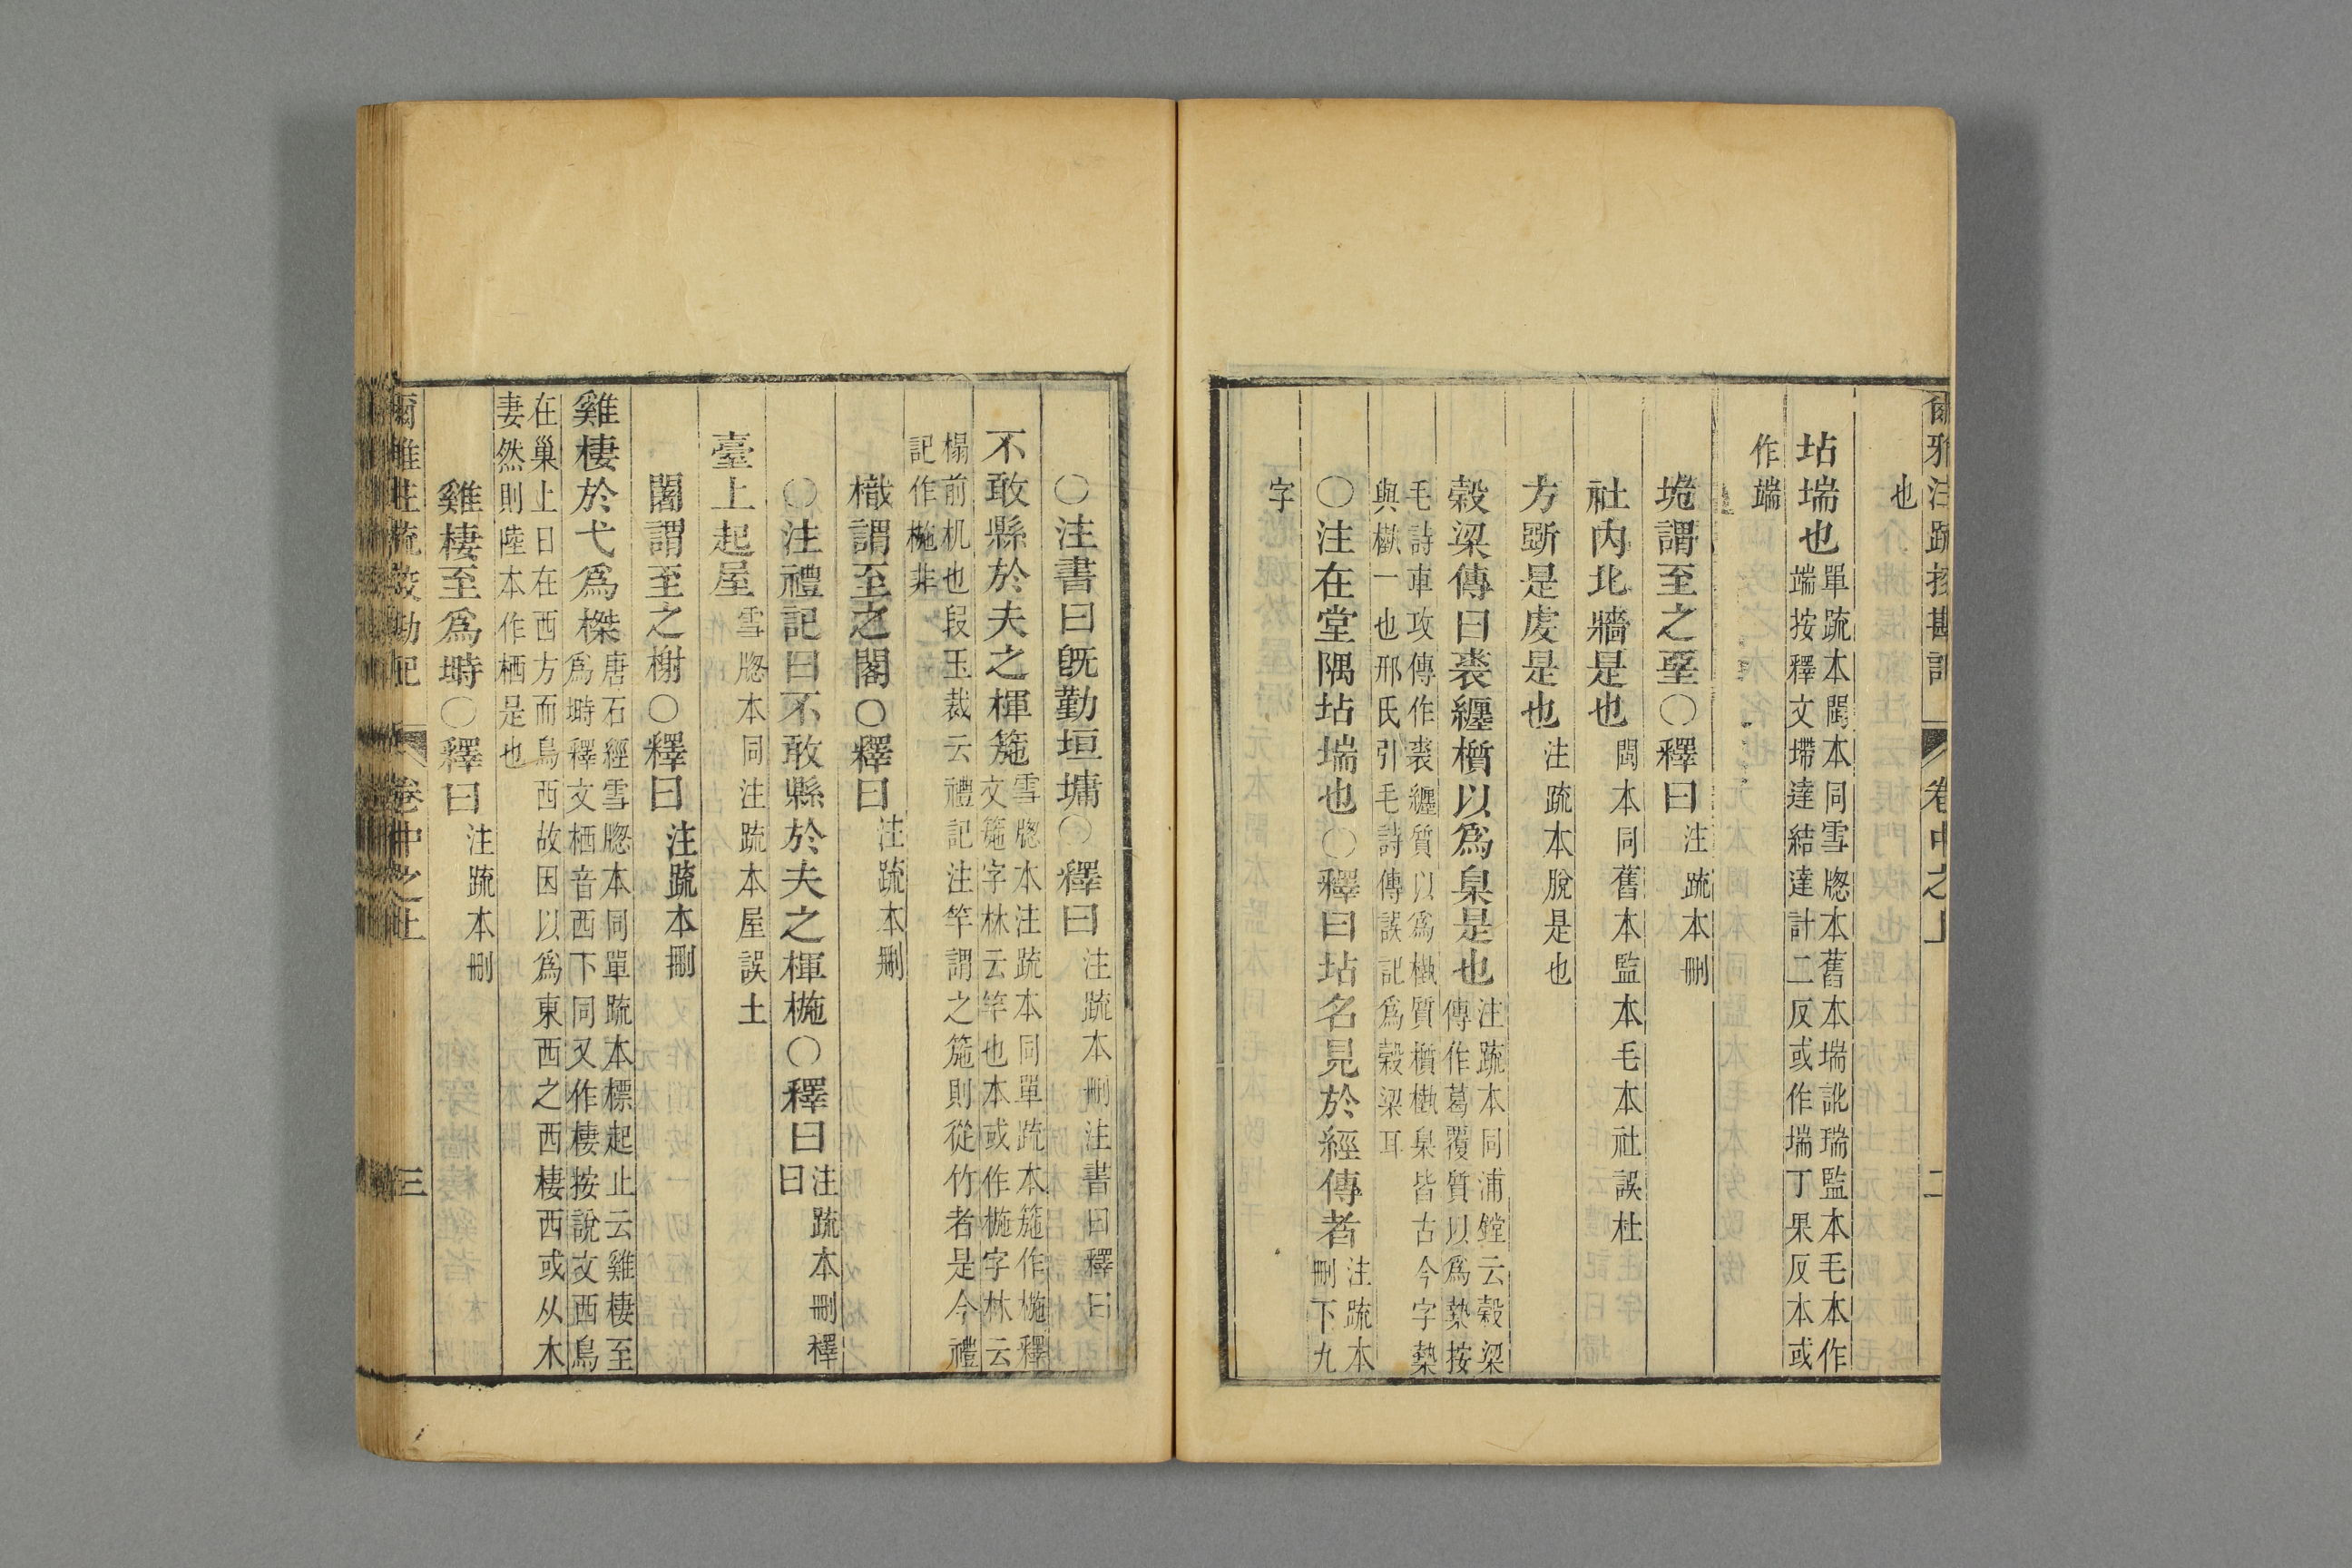 爾雅注疏挍勘記　卷中之上　二
也
坫㙐也單疏本閩本同雪牕本舊本㙐訛瑞監本毛本作
端按釋文墆達結達計二反或作㙐丁果反本或
作端
垝謂至之堊○釋曰注疏本刪
社內北牆是也閩本同舊本監本毛本社誤杜
方斲是虔是也注疏本脫是也
穀梁傳曰裘纏櫍以爲臬是也注疏本同浦鏜云穀梁
傳作葛覆質以爲槷按
毛詩車攻傳作裘纏質以爲槸質櫍槸臬皆古今字槷
與槸一也邢氏引毛詩傳誤記爲穀梁耳
○注在堂隅坫㙐也○釋曰坫名見於經傳者注疏本
刪下九
字
○注書曰旣勤垣墉○釋曰注疏本刪注書曰釋曰
不敢縣於夫之楎箷雪牕本注疏本同單疏本箷作椸釋
文箷字林云竿也本或作椸字林云
榻前机也段玉裁云禮記注竿謂之箷則從竹者是今禮
記作椸非
樴謂至之閣○釋曰注疏本刪
○注禮記曰不敢縣於夫之楎椸○釋曰注疏本刪釋
曰
臺上起屋雪牕本同注疏本屋誤土
闍謂至之榭○釋曰注疏本刪
雞棲於弋爲榤唐石經雪牕本同單疏本標起止云雞棲至
爲塒釋文栖音西下同又作棲按說文西鳥
在巢上日在西方而鳥西故因以爲東西之西棲西或从木
妻然則陸本作栖是也
雞棲至爲塒○釋曰注疏本刪
爾雅注疏挍勘記　卷中之上　三